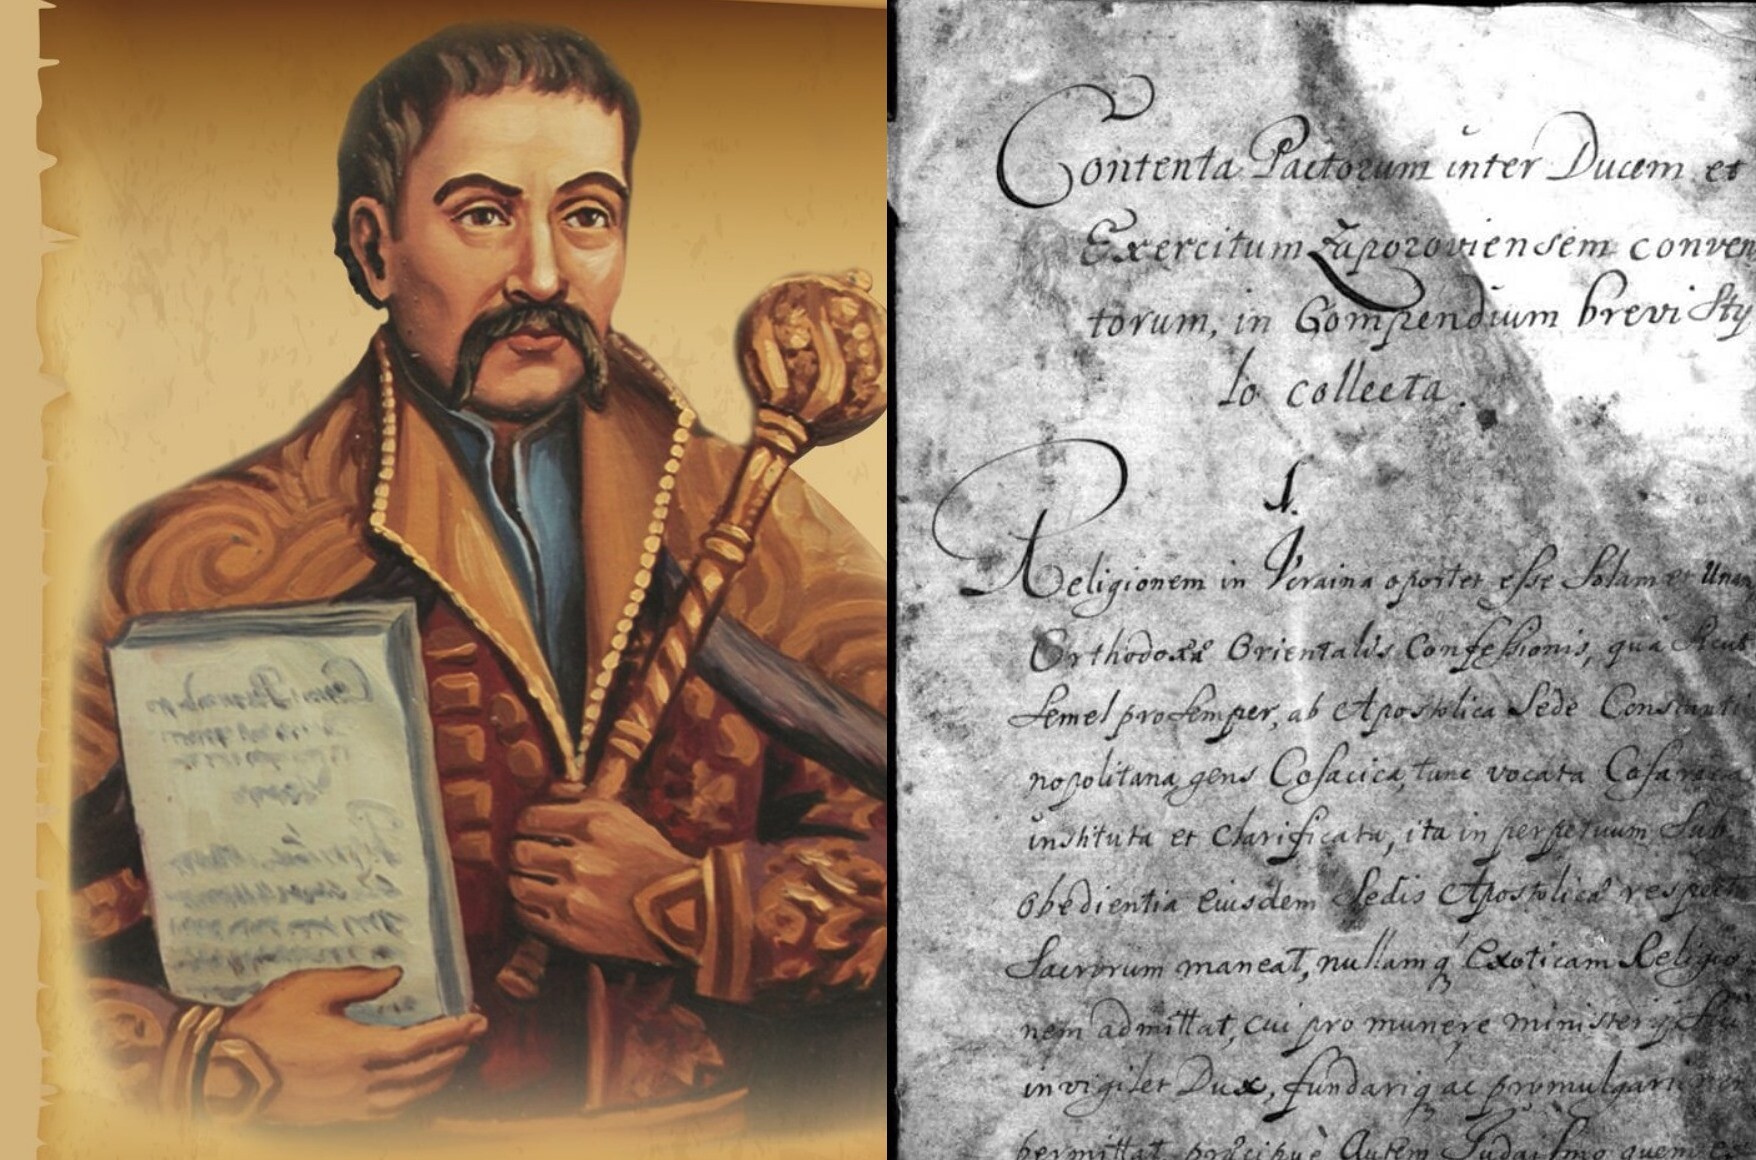 Contenta Pactorum inter Ducem et
Exercitum Zaporoviensem conven
torum, in Compendium brevi Sty
lo collecta.
1.
Religionem in Vcraina oportet esse Solam et Unam
Orthodoxæ Orientalis Confessionis, qua sicut
semel pro semper, ab Apostolica Sede Constanti
nopolitana gens Cosacica, tunc vocata Cosarica
instituta et clarificata, ita in perpetuum Sub
obedientia eiusdem Sedis Apostolicæ respectu
Sacrorum maneat, nullamq́ Exoticam Religio
nem admittat, cui pro munere ministerij Sui
invigilet Dux, fundariq́ ac promulgari non
permittat, præcipuè Autem Judaismo quem ex